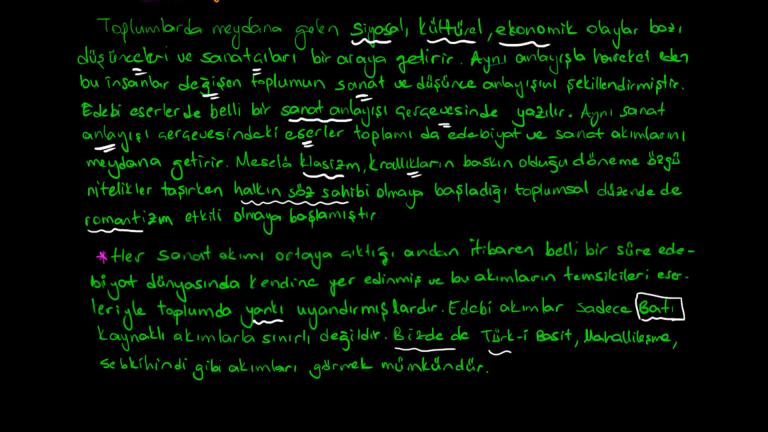 Toplumlarda meydana gelen siyasal, kültürel, ekonomik olaylar bazı
düşünceleri ve sanatçıları bir araya getirir. Aynı anlayışla hareket eden
bu insanlar değişen toplumun sanat ve düşünce anlayışını şekillendirmiştir.
Edebi eserlerde belli bir sanat anlayışı çerçevesinde yazılır. Aynı sanat
anlayışı çerçevesindeki eserler toplamı da edebiyat ve sanat akımlarını
meydana getirir. Mesela klasizm, krallıkların baskın olduğu döneme özgü
nitelikler taşırken halkın söz sahibi olmaya başladığı toplumsal düzende de
romantizm etkili olmaya başlamıştır
* Her sanat akımı ortaya çıktığı andan itibaren belli bir süre ede-
biyat dünyasında kendine yer edinmiş ve bu akımların temsilcileri eser-
leriyle toplumda yankı uyandırmışlardır. Edebi akımlar sadece Batı
kaynaklı akımlarla sınırlı değildir. Bizde de Türk-i Basit, Mahallileşme,
sebkihindi gibi akımları görmek mümkündür.